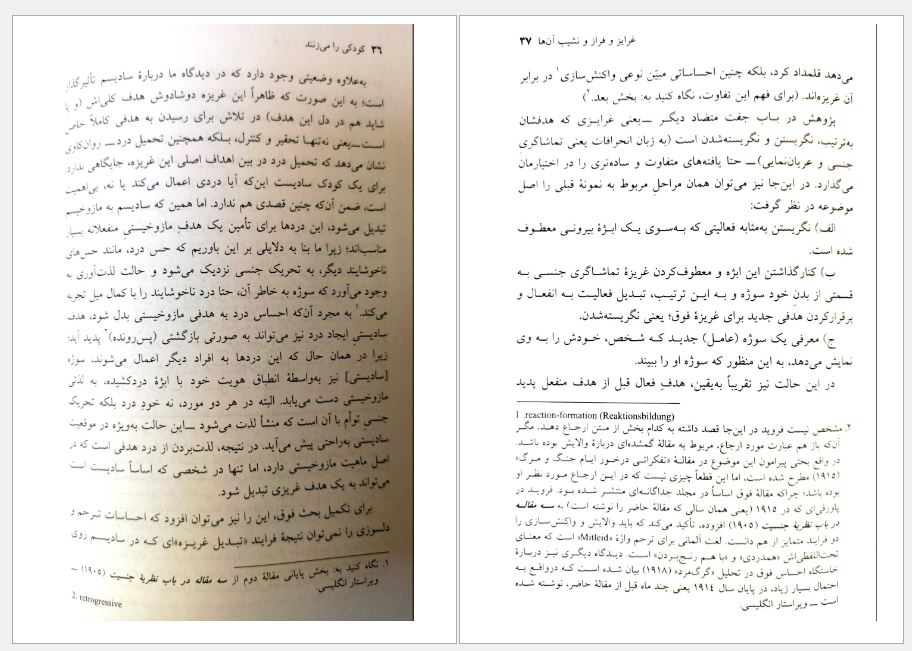 ۳۶ کودکی را می‌زنند
به‌علاوه وضعیتی وجود دارد که در دیدگاه ما دربارهٔ سادیسم تأثیرگذار
است؛ به این صورت که ظاهراً این غریزه دوشادوش هدف کلی‌اش (و یا
شاید هم در دل این هدف) در تلاش برای رسیدن به هدفی کاملاً خاص
است—یعنی نه‌تنها تحقیر و کنترل، بلکه همچنین تحمیل درد— روان‌کاوی
نشان می‌دهد که تحمیل درد در بین اهداف اصلی این غریزه، جایگاهی ندارد
برای یک کودک سادیست این‌که آیا دردی اعمال می‌کند یا نه، بی‌اهمیت
است، ضمن آن‌که چنین قصدی هم ندارد. اما همین که سادیسم به مازوخیسم
تبدیل می‌شود، این دردها برای تأمین یک هدفِ مازوخیستی منفعلانه بسیار
مناسب‌اند؛ زیرا ما بنا به دلایلی بر این باوریم که حس درد، مانند حس‌های
ناخوشایند دیگر، به تحریک جنسی نزدیک می‌شود و حالت لذت‌آوری به
وجود می‌آورد که سوژه به خاطر آن، حتا درد ناخوشایند را با کمال میل تجربه
می‌کند.۱ به مجرد آن‌که احساس درد به هدفی مازوخیستی بدل شود، هدف
سادیستی ایجاد درد نیز می‌تواند به صورتی بازگشتی (پس‌رونده)۲ پدید آید؛
زیرا در همان حال که این دردها به افراد دیگر اعمال می‌شوند، سوژه
[سادیستی] نیز به‌واسطهٔ انطباق هویت خود با ابژهٔ دردکشیده، به لذتی
مازوخیستی دست می‌یابد. البته در هر دو مورد، نه خودِ درد بلکه تحریک
جنسیِ توأم با آن است که منشأ لذت می‌شود —این حالت به‌ویژه در موقعیت
سادیستی به‌راحتی پیش می‌آید. در نتیجه، لذت‌بردن از درد هدفی است که در
اصل ماهیت مازوخیستی دارد، اما تنها در شخصی که اساساً سادیست است
می‌تواند به یک هدف غریزی تبدیل شود.
برای تکمیل بحث فوق، این را نیز می‌توان افزود که احساسات ترحم و
دلسوزی را نمی‌توان نتیجهٔ فرایند «تبدیل غریزه»ای که در سادیسم روی
۱. نگاه کنید به: بخش پایانی مقالهٔ دوم از سه مقاله در باب نظریهٔ جنسیت (۱۹۰۵) —
ویراستار انگلیسی.
2. retrogressive
غرایز و فراز و نشیب آن‌ها ۳۷
می‌دهد قلمداد کرد، بلکه چنین احساساتی مبیّن نوعی واکنش‌سازی۱ در برابر
آن غریزه‌اند. (برای فهم این تفاوت، نگاه کنید به: بخش بعد.۲)
پژوهش در باب جفت متضاد دیگر —یعنی غرایزی که هدفشان
به‌ترتیب، نگریستن و نگریسته‌شدن است (به زبان انحرافات یعنی تماشاگری
جنسی و عریان‌نمایی)— حتا یافته‌های متفاوت و ساده‌تری را در اختیارمان
می‌گذارد. در این‌جا نیز می‌توان همان مراحلِ مربوط به نمونهٔ قبلی را اصل
موضوعه در نظر گرفت:
الف) نگریستن به‌مثابه فعالیتی که به‌سوی یک ابژهٔ بیرونی معطوف
شده است.
ب) کنارگذاشتن این ابژه و معطوف‌کردن غریزهٔ تماشاگری جنسی به
قسمتی از بدنِ خود سوژه و به این ترتیب، تبدیل فعالیت به انفعال و
برقرارکردن هدفی جدید برای غریزهٔ فوق؛ یعنی نگریسته‌شدن.
ج) معرفی یک سوژه (عامل) جدید که شخص، خودش را به وی
نمایش می‌دهد، به این منظور که سوژه او را ببیند.
در این حالت نیز تقریباً به‌یقین، هدفِ فعال قبل از هدف منفعل پدید
1 .reaction-formation (Reaktionsbildung)
۲. مشخص نیست فروید در این‌جا قصد داشته به کدام بخش از متن ارجاع دهد، مگر
آن‌که باز هم عبارت مورد ارجاع، مربوط به مقالهٔ گمشده‌ای دربارهٔ والایش بوده باشد.
در واقع بحثی پیرامون این موضوع در مقالهٔ «تفکراتی درخور ایام جنگ و مرگ»
(۱۹۱۵) مطرح شده است، اما این قطعاً چیزی نیست که در این ارجاع مورد نظر او
بوده باشد؛ چراکه مقالهٔ فوق اساساً در مجلد جداگانه‌ای منتشر شده بود. فروید در
پاورقی‌ای که در ۱۹۱۵ (یعنی همان سالی که مقالهٔ حاضر را نوشته است) به سه مقاله
در باب نظریهٔ جنسیت (۱۹۰۵) افزوده، تأکید می‌کند که باید والایش و واکنش‌سازی را
دو فرایند متمایز از هم دانست. لغت آلمانی برای ترحم واژهٔ «Mitleid» است که معنای
تحت‌اللفظی‌اش «همدردی» و «با هم رنج‌بردن» است. دیدگاه دیگری نیز دربارهٔ
خاستگاه احساس فوق در تحلیل «گرگ‌مرد» (۱۹۱۸) بیان شده است که درواقع به
احتمال بسیار زیاد، در پایان سال ۱۹۱۴ یعنی چند ماه قبل از مقالهٔ حاضر، نوشته شده
است — ویراستار انگلیسی.